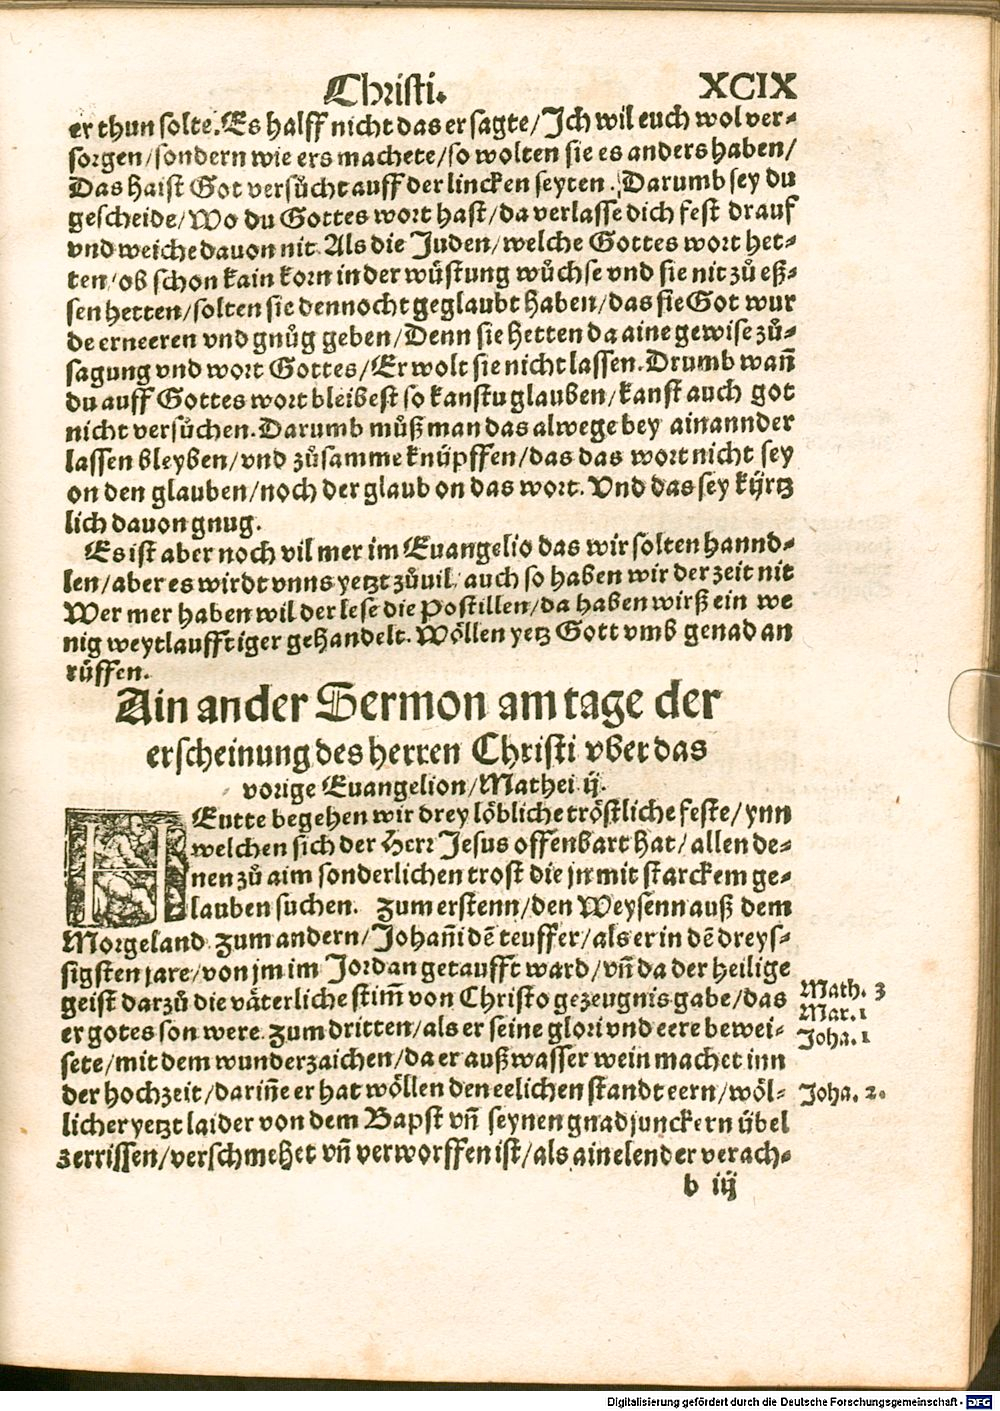 Christi. XCIX
er thun solte. Es halff nicht das er sagte/ Jch wil euch wol ver⸗
sorgen/ sondern wie ers machete/ so wolten sie es anders haben/
Das haist Got versůcht auff der lincken seyten. Darumb sey du
gescheide/ Wo du Gottes wort hast/ da verlasse dich fest drauf
vnd weiche dauon nit. Als die Juden/ welche Gottes wort het⸗
ten/ ob schon kain korn in der wüstung wůchse vnd sie nit zů eß⸗
sen hetten/ solten sie dennocht geglaubt haben/ das sie Got wur
de erneeren vnd gnůg geben/ Denn sie hetten da aine gewise zů⸗
sagung vnd wort Gottes/ Er wolt sie nicht lassen. Drumb wañ
du auff Gottes wort bleibest so kanstu glauben/ kanst auch got
nicht versůchen. Darumb můß man das alwege bey ainannder
lassen bleyben/ vnd zůsamme knüpffen/ das das wort nicht sey
on den glauben/ noch der glaub on das wort. Vnd das sey kÿrtz
lich dauon gnug.
Es ist aber noch vil mer im Euangelio das wir solten hannd⸗
len/ aber es wirdt vnns yetzt zůuil/ auch so haben wir der zeit nit
Wer mer haben wil der lese die Postillen/ da haben wirß ein we
nig weytlaufftiger gehandelt. Wöllen yetz Gott vmb genad an
rüffen.
Ain ander Sermon am tage der
erscheinung des herren Christi vber das
vorige Euangelion/ Mathei ij.
HEutte begehen wir drey löbliche tröstliche feste/ ynn
welchen sich der Herr Jesus offenbart hat/ allen de⸗
nen zů aim sonderlichen trost die jn mit starckem ge⸗
lauben suchen. Zum erstenn/ den Weysenn auß dem
Morgeland. Zum andern/ Johañi dē teuffer/ als er in dē dreys⸗
sigsten jare/ von jm im Jordan getaufft ward/ vñ da der heilige
geist darzů die väterliche stim̃ von Christo gezeugnis gabe/ das
er gotes son were. Zum dritten/ als er seine glori vnd eere bewei⸗
sete/ mit dem wunderzaichen/ da er auß wasser wein machet inn
der hochzeit/ dariñe er hat wöllen den eelichen standt eern/ wöl⸗
licher yetzt laider von dem Bapst vñ seynen gnadjunckern übel
zerrissen/ verschmehet vñ verworffen ist/ als ain elender verach⸗
b iij
Math. 3
Mar. 1
Joha. 1
Joha. 2.
Digitalisierung gefördert durch die Deutsche Forschungsgemeinschaft - DFG